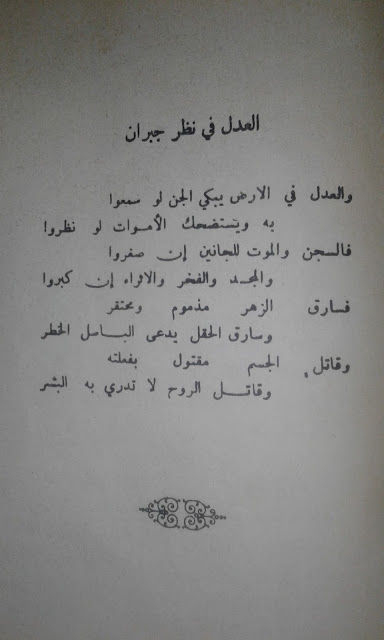 العدل في نظر جبران
والعدل في الارض يبكي الجن لو سمعوا
به ويستضحك الأموات لو نظروا
فالسجن والموت للجانين إن صغروا
والمجد والفخر والاثراء إن كبروا
فسارق الزهر مذموم ومحتقر
وسارق الحقل يدعى الباسل الخطر
وقاتل الجسم مقتول بفعلته
وقاتل الروح لا تدري به البشر